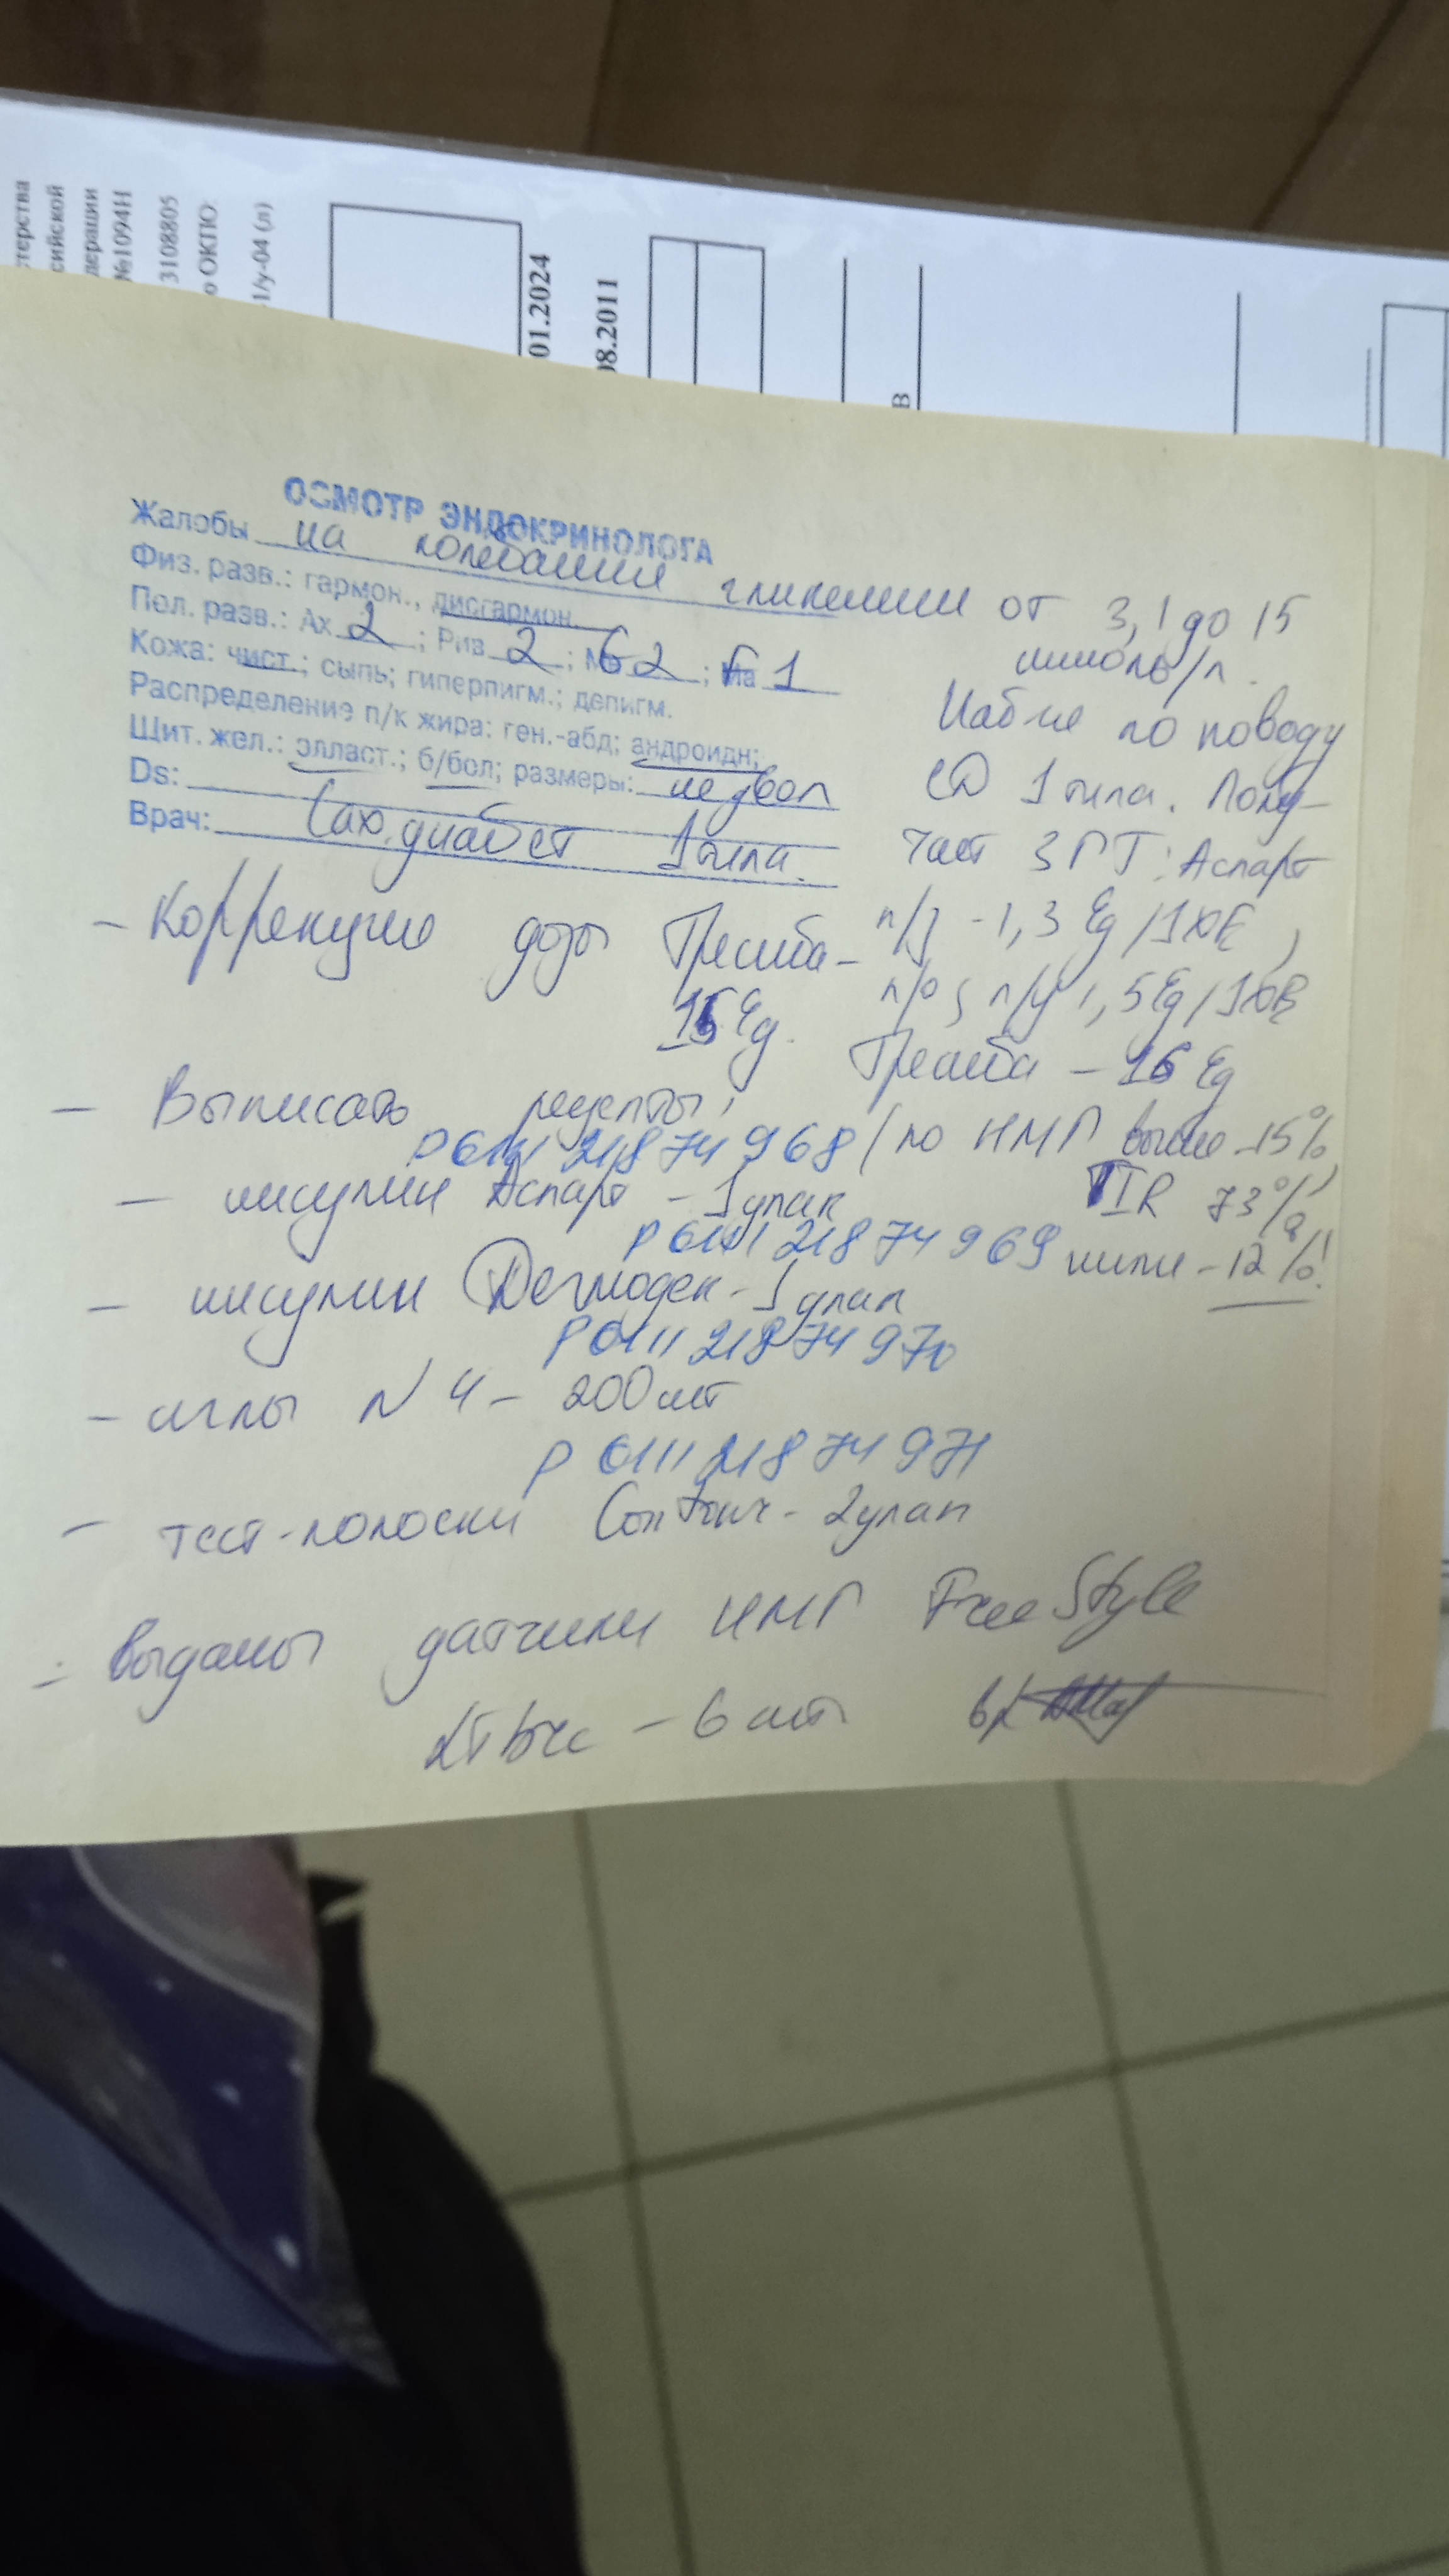 терства
сийской
дерации
№1094Н
3108805
о ОКПО:
1/у-04 (л)
01.2024
08.2011
В
ОСМОТР ЭНДОКРИНОЛОГА
Жалобы на колебания гликемии от 3,1 до 15
ммоль/л.
Физ. разв.: гармон., дисгармон.
Пол. разв.: Ах 2; Рив 2; 2; 1
Кожа: чист.; сыпь; гиперпигм.; депигм.
Распределение п/к жира: ген.-абд; андроидн;
Щит. жел.: элласт.; б/бол; размеры: не увел
Ds:
Врач: Сах. диабет 1 типа.
Набл-ие по поводу
СД 1 типа. Полу-
чает ЗГТ: Аспарт
п/з - 1,3 Ед/1ХЕ,
п/о, п/у 1,5 Ед/1ХЕ
Тресиба - 16 Ед
(по НМГ выше - 15%
TIR 73%,
ниже - 12%!
- Коррекция дозы Тресиба -
15 Ед.
- Выписать рецепты:
Р6111 218 74 968
- инсулин Аспарт - 1 упак
Р6111 218 74 969
- инсулин Деглюдек - 1 упак
Р6111 218 74 970
- иглы N 4 - 200 шт
Р 6111 218 74 971
- тест-полоски Contour - 2 упак
- выданы датчики НМГ FreeStyle
Libre - 6 шт